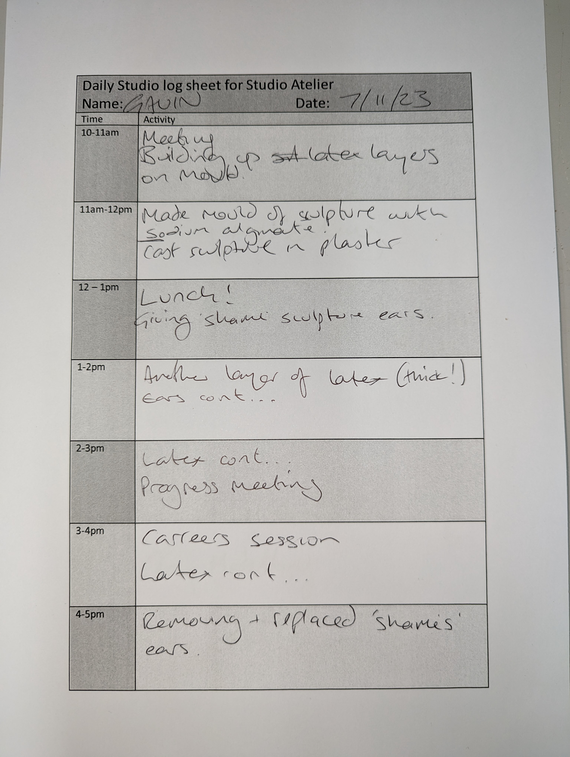 Daily Studio log sheet for Studio Atelier
Name: GAVIN Date: 7/11/23
Time Activity
10-11am Meeting
Building up latex layers
on mould.
11am-12pm Made mould of sculpture with
sodium alginate.
Cast sculpture in plaster
12 – 1pm Lunch!
Giving 'shami' sculpture ears.
1-2pm Another layer of latex (thick!)
Ears cont...
2-3pm Latex cont...
Progress meeting
3-4pm Careers session
Latex cont...
4-5pm Removing + replaced 'shamis'
ears.